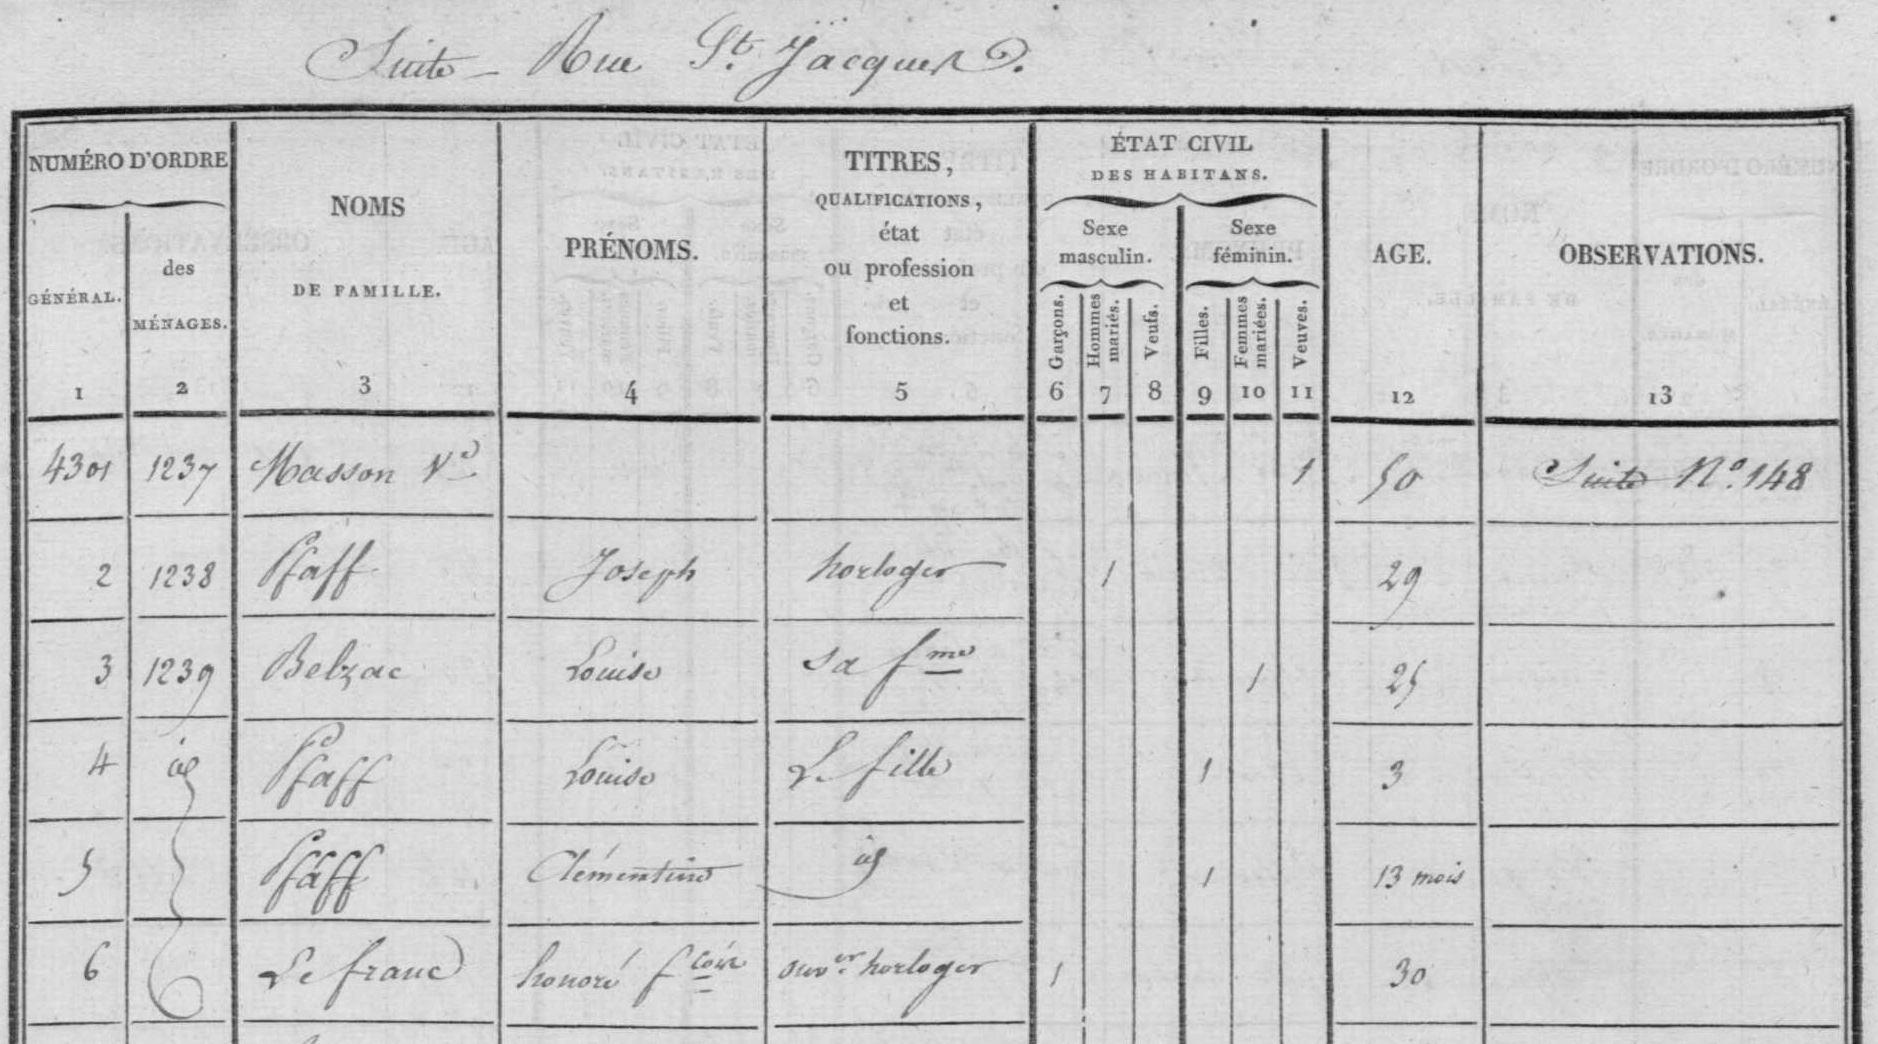 Suite - Rue St. Jacques.
NUMÉRO D'ORDRE
GÉNÉRAL.
des
MÉNAGES.
NOMS
DE FAMILLE.
PRÉNOMS.
TITRES,
QUALIFICATIONS,
état
ou profession
et
fonctions.
ÉTAT CIVIL
DES HABITANS.
Sexe
masculin.
Sexe
féminin.
Garçons.
Hommes
mariés.
Veufs.
Filles.
Femmes
mariées.
Veuves.
AGE.
OBSERVATIONS.
1 2 3 4 5 6 7 8 9 10 11 12 13
4301 1237 Masson Ve 1 50 Suite N°. 148
2 1238 Pfaff Joseph horloger 1 29
3 1239 Belzac Louise sa fme 1 25
4 id Pfaff Louise Le fille 1 3
5 Pfaff Clémentine id 1 13 mois
6 Lefranc honoré fcois ouver horloger 1 30